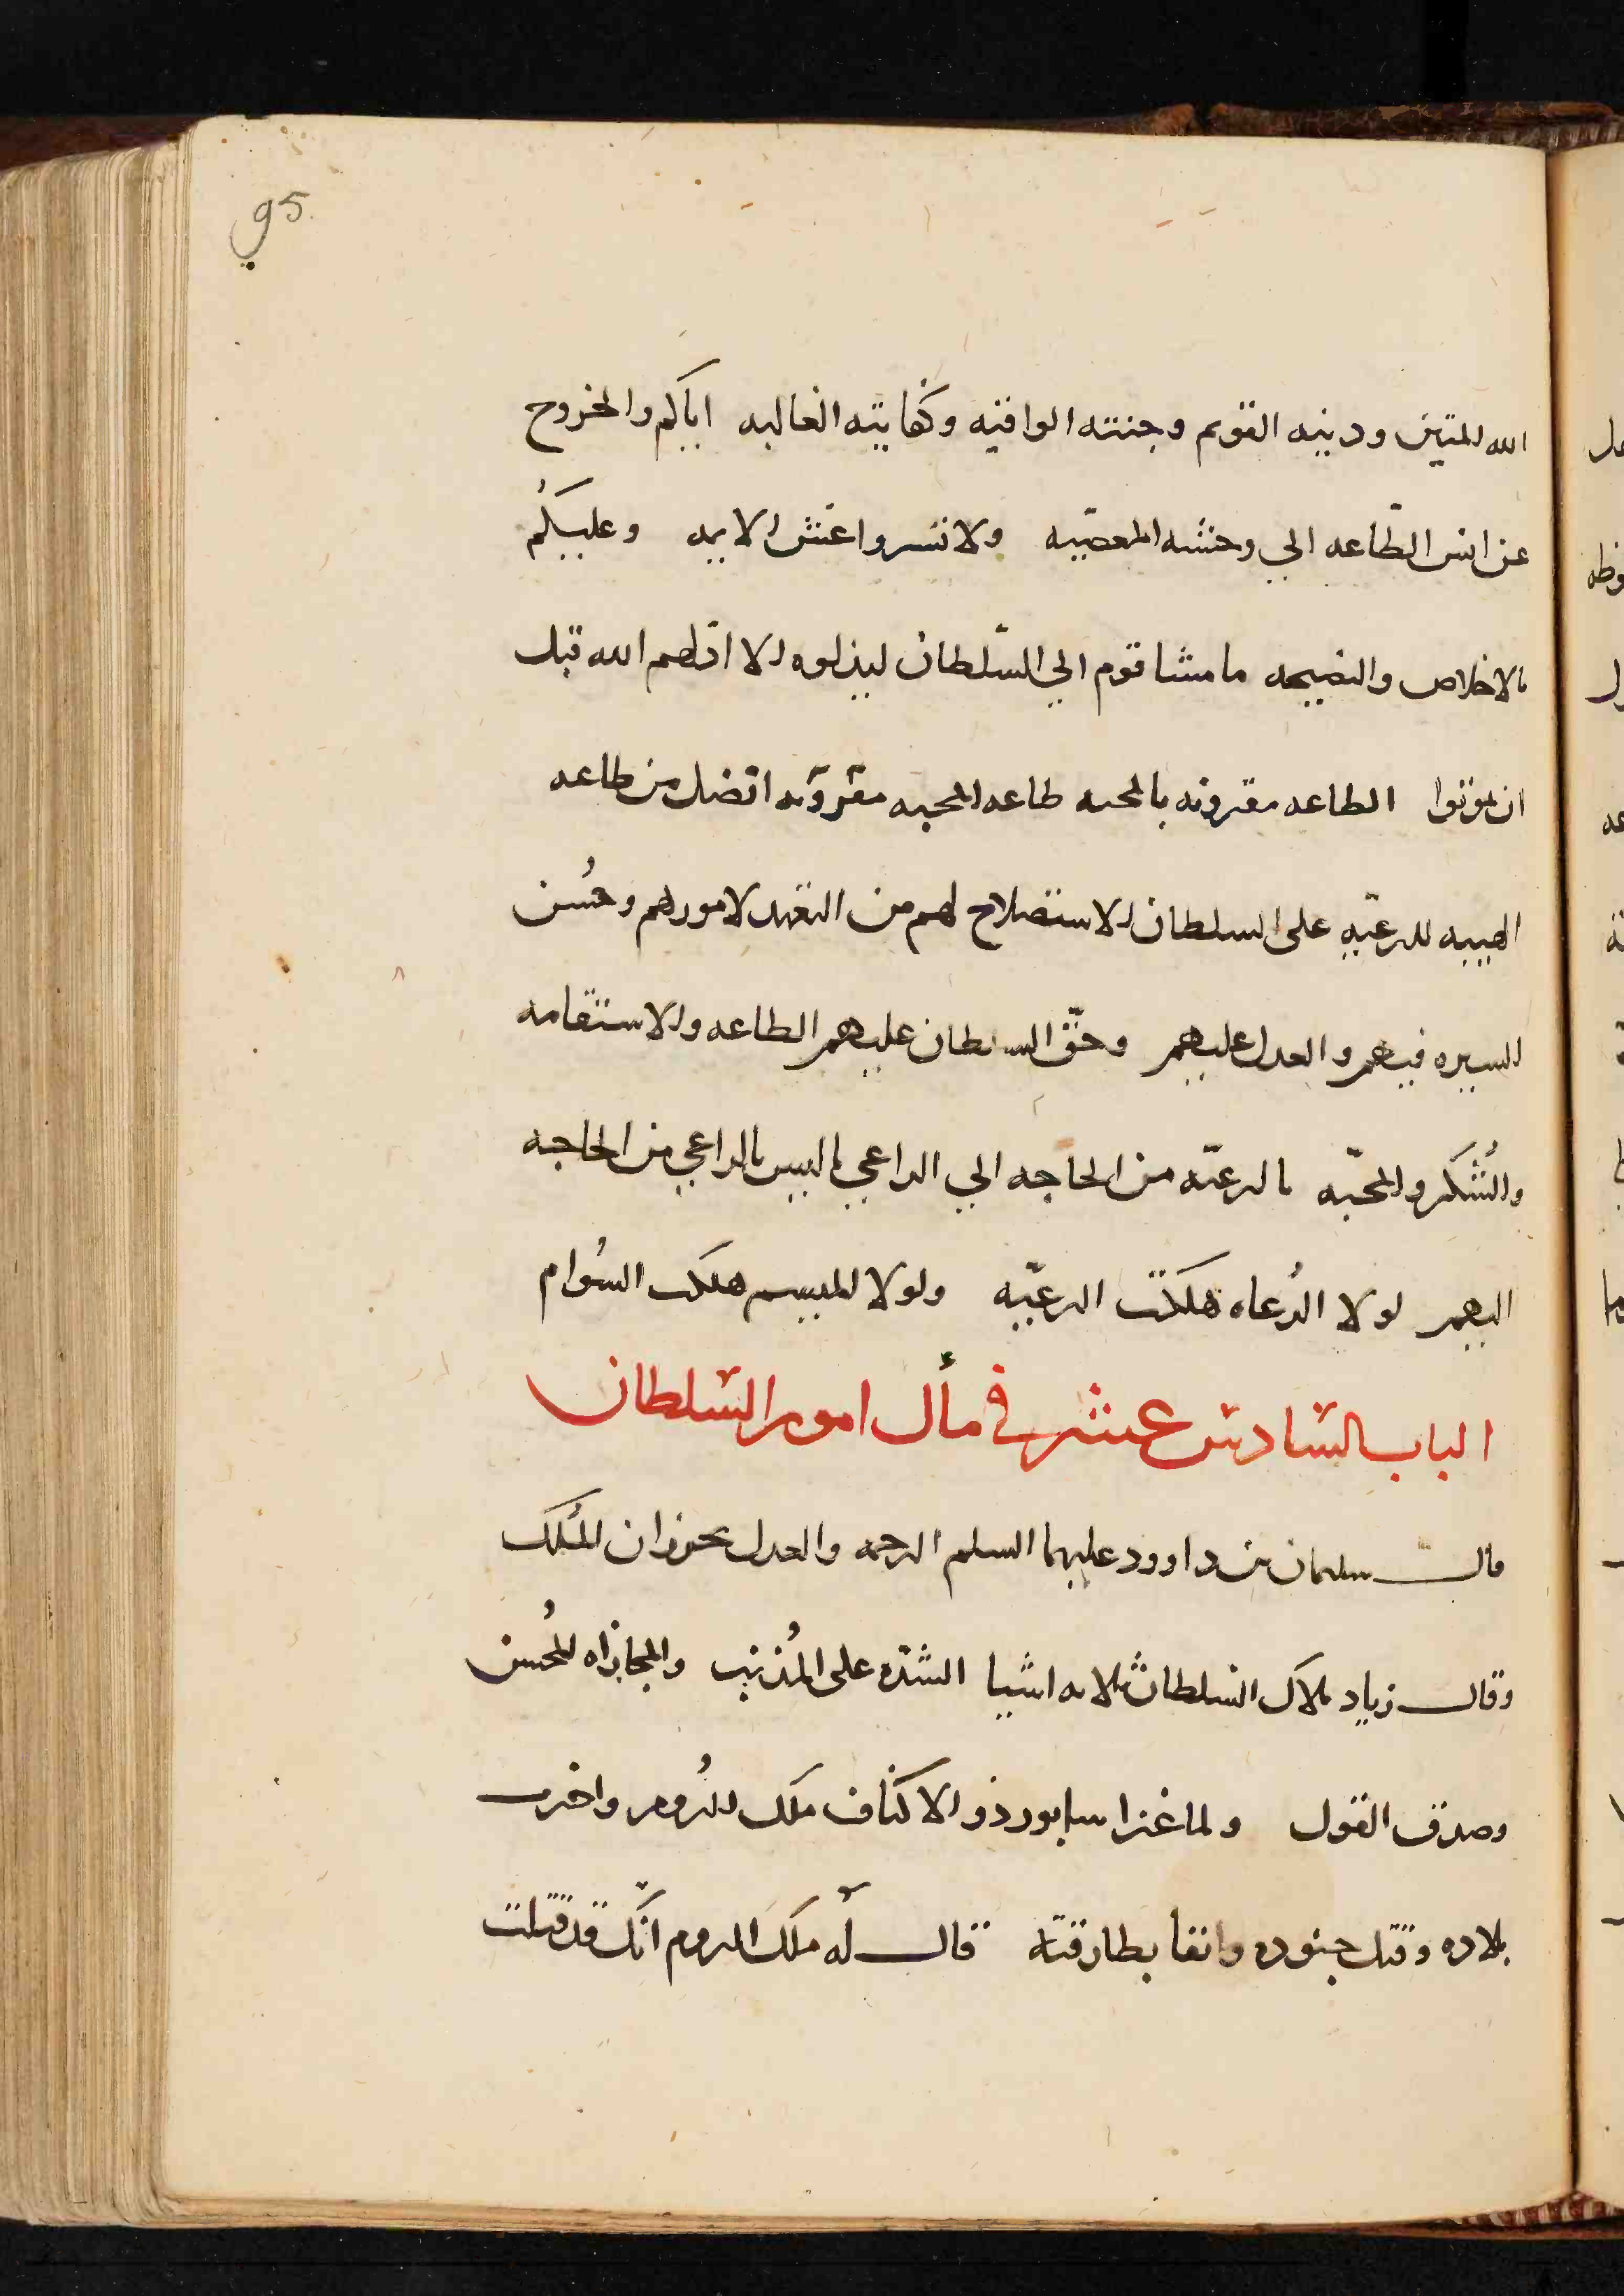 95.
الله المتين ودينه القويم وجنته الواقيه وكفايته الغالبه اياكم والخروج
عن انس الطّاعه الي وحشه المعصيّه ولا تسروا غش الايمه وعليكُم
بالاخلاص والنصيحه ما مشا قوم الي السّلطان ليذلوه الا اذلهم الله قبل
ان يموتوا الطاعه مقرونه بالمحبه طاعه المحبه مقرونه افضل من طاعه
الهيبه للرعيّه على السلطان الاستصلاح لهم من التعهد لامورهم وحُسن
السيره فيهم والعدل عليهم وحقّ السلطان عليهم الطاعه والاستقامه
والشُكر والمحبّه بالرعيّه من الحاجه الي الراعي ما ليس بالراعي من الحاجه
اليهم لولا الرُعاه هلكت الرعيّه ولولا المسيم هلكت السُوام
الباب السّادس عشر في مأل امور السّلطان
قال سليمان بن داوود عليهما السلم الرحمه والعدل يحرزان المُلك
وقال زياد ملاك السلطان ثلاثه اشيا الشدّه على المُذنب والمجازاه للمُحسن
وصدق القول ولما غزا سابور ذو الاكتاف ملك الرُوم واخرب
بلاده وقتل جنوده وافنا بطارقته قال له ملك الروم انّك قد قتلت